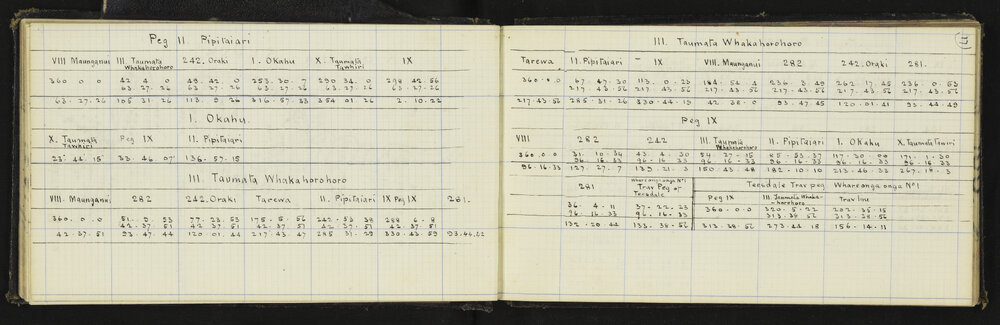 Peg II. Pipitaiari
VIII Maunganui III. Taumata Whakahorohoro 242. Oraki I. Okahu X. Taumata Tawhiri IX
360 0 0 42 4 0 49. 42. 0 253. 30. 7 290 34. 0 298 42. 56
63. 27. 26 63 27. 26 63. 27. 26 63. 27. 26 63. 27. 26
63. 27. 26 105 31 26 113. 9. 26 316. 57. 33 354 01 26 2. 10. 22
I. Okahu
X. Taumata Tawhiri Peg IX II. Pipitaiari
23 44 15 33 46. 07 136. 57. 15
III. Taumata Whakahorohoro
VIII. Maunganui 282 242. Oraki Tarewa II. Pipitaiari IX Peg IX 281.
360. 0. 0 51. 9. 53 77. 23. 53 175. 5. 56 242. 53 38 288 6. 8
42. 37. 51 42 37. 51 42. 37. 51 42. 37. 51 42. 37. 51
42. 37. 51 93. 47. 44 120 01. 44 217. 43. 47 285 31. 29 330. 43. 59
(17)
III. Taumata Whakahorohoro
Tarewa II. Pipitaiari IX VIII. Maunganui 282 242. Oraki 281.
360. 0. 0 67. 47. 30 113. 0. 23 184. 54. 4 236. 3. 49 262. 17. 45 236. 0. 53
217. 43. 56 217. 43. 56 217. 43. 56 217. 43. 56 217. 43. 56 217. 43. 56
217. 43. 56 285. 31. 26 330. 44. 19 42. 38. 0 93. 47. 45 120. 01. 41 93. 44. 49
Peg IX
VIII 282 242 III. Taumata Whakahorohoro II. Pipitaiari I. Okahu X. Taumatatawhiri
360. 0. 0 31. 10. 34 43. 4. 30 54. 27. 15 85. 53. 37 117. 30. 00 171. 1. 30
96. 16. 33 96. 16. 33 96. 16. 33 96. 16. 33 96. 16. 33 96. 16. 33
96. 16. 33 127. 27. 7 139. 21. 3 150. 43. 48 182. 10. 10 213. 46. 33 267. 18. 3
281 Whareongaonga No 1 Trav Peg at Teesdale Teesdale Trav peg Whareongaonga No 1
Peg IX III. Taumata Whakahorohoro Trav line
36. 4. 11 37. 22. 23 360. 0. 0 320. 5. 22 202. 35. 15
96. 16. 33 96. 16. 33 313. 38. 56 313. 38. 56
132. 20. 44 133. 38. 56 313. 38. 56 273. 44 18 156. 14. 11